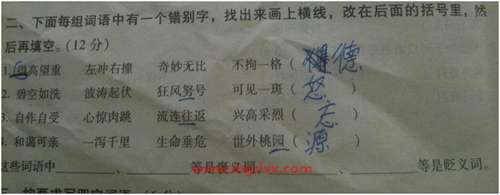 二、下面每组词语中有一个错别字，找出来画上横线，改在后面的括号里，然
后再填空。(12 分)
1. 得高望重 左冲右撞 奇妙无比 不拘一格 ( 德
2. 碧空如洗 波涛起伏 狂风努号 可见一斑 ( 怒 )
3. 自作自受 心惊肉跳 流连往返 兴高采烈 ( 忘 )
4. 和蔼可亲 一泻千里 生命垂危 世外桃园 ( 源 )
这些词语中 、 等是褒义词, 、 等是贬义词。